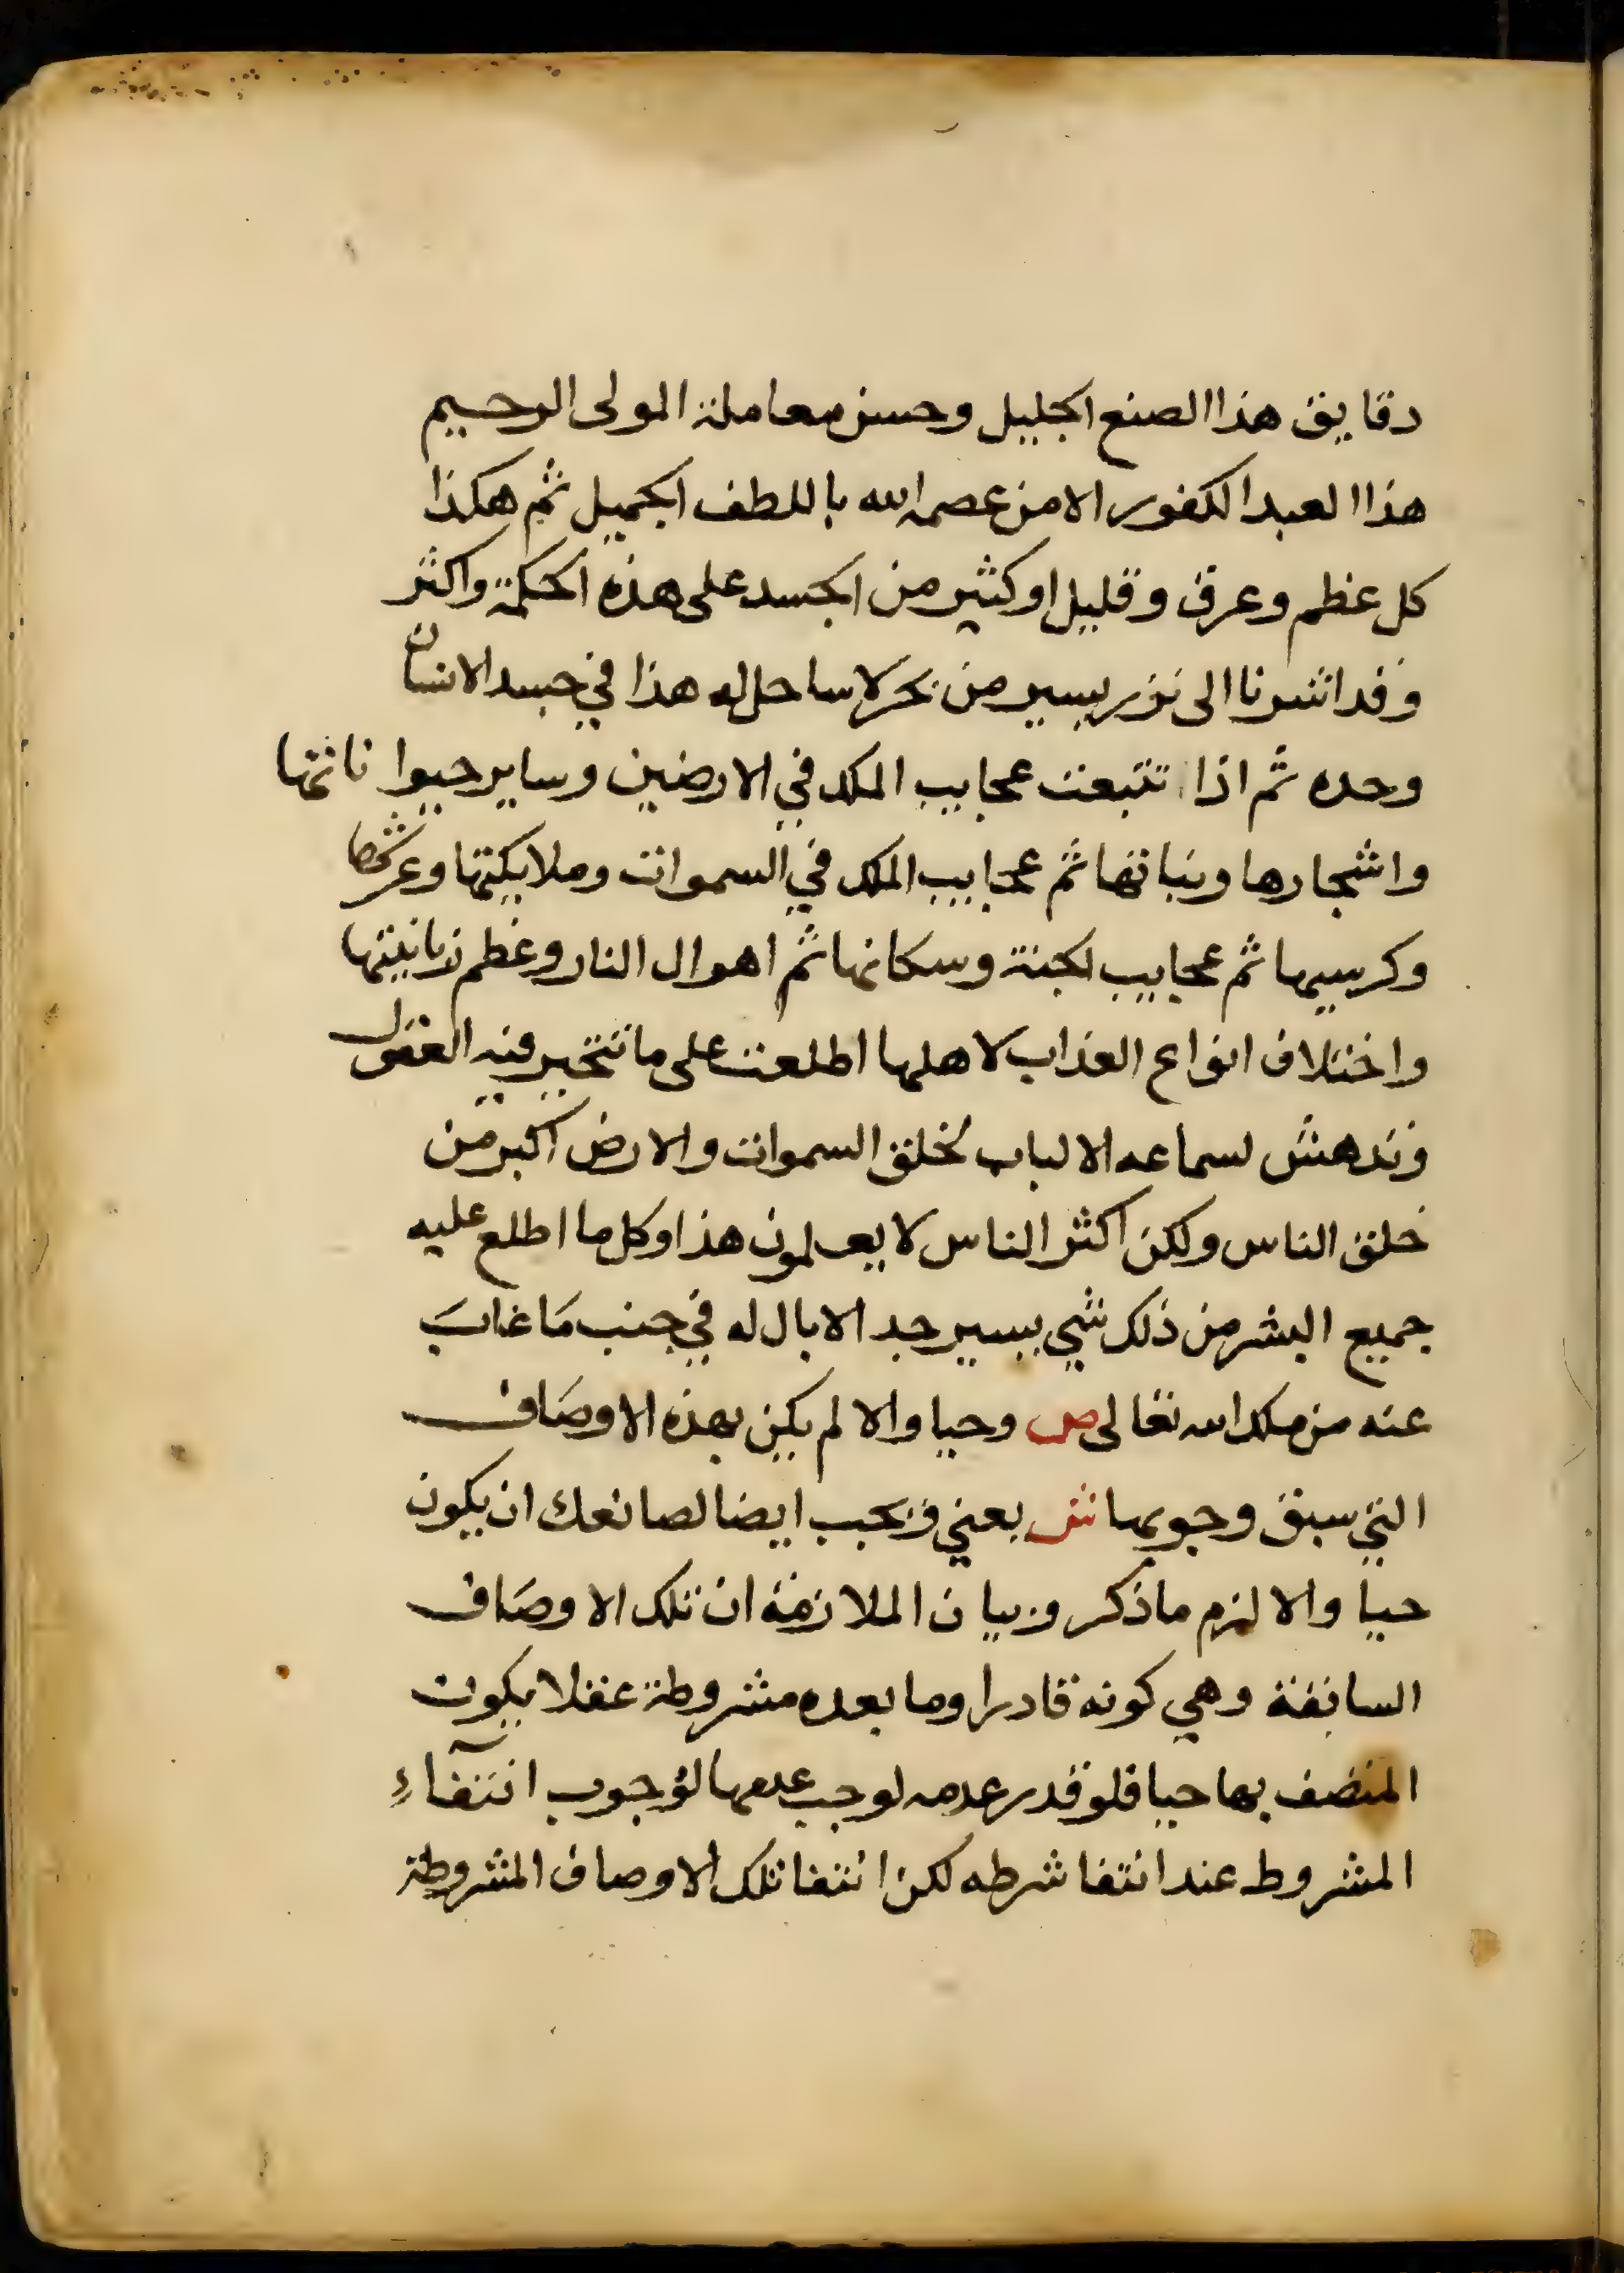 دقايق هذا الصنع الجليل وحسن معاملة المولى الرحيم
هذا العبد الكفور الا من عصمه الله باللطف الجميل ثم هكذا
كل عظم وعرق وقليل او كثير من الجسد على هذه الحكمة واكثر
وقد اشرنا الى نزر يسير من بحر لا ساحل له هذا في جسد الانسان
وحده ثم اذا تتبعت عجايب الملك في الارضين وساير حيواناتها
واشجارها ونباتها ثم عجايب الملك في السموات وملايكتها وعرشها
وكرسيها ثم عجايب الجنة وسكانها ثم اهوال النار وعظم زبانيتها
واختلاف انواع العذاب لاهلها اطلعت على ما تتحير فيه العقول
وتدهش لسماعه الالباب لخلق السموات والارض اكبر من
خلق الناس ولكن اكثر الناس لا يعلمون هذا وكل ما اطلع عليه
جميع البشر من ذلك شي يسير جدا لا بال له في جنب مَا غابَ
عنه من ملك الله تعالى ص وحيا والا لم يكن بهذه الاوصَاف
التي سبق وجوبها ش يعني ويجب ايضا لصانعك ان يكون
حيا والا لزم ما ذكر وبيان الملازمة ان تلك الاوصَاف
السابقة وهي كونه قادرا وما بعده مشروطة عقلا بكون
المتصف بها حيا فلو قدر عدمه لوجب عدمها لوجوب انتفآء
المشروط عند انتفا شرطه لكن انتفا تلك الاوصاف المشروطة